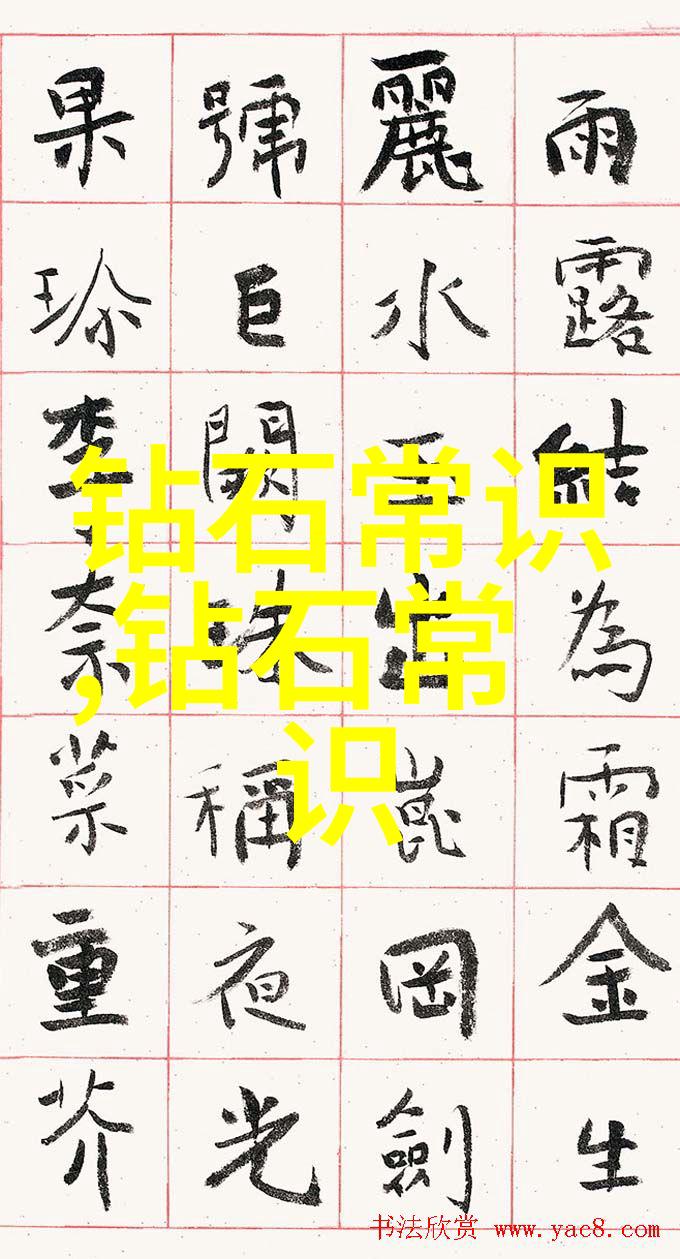 雨露結為霜金生
麗水玉出崑岡劍
號巨闕珠稱夜光
果珍李奈菜重芥
钻石常识
,钻石常
识
书法欣赏 www.yac8.com